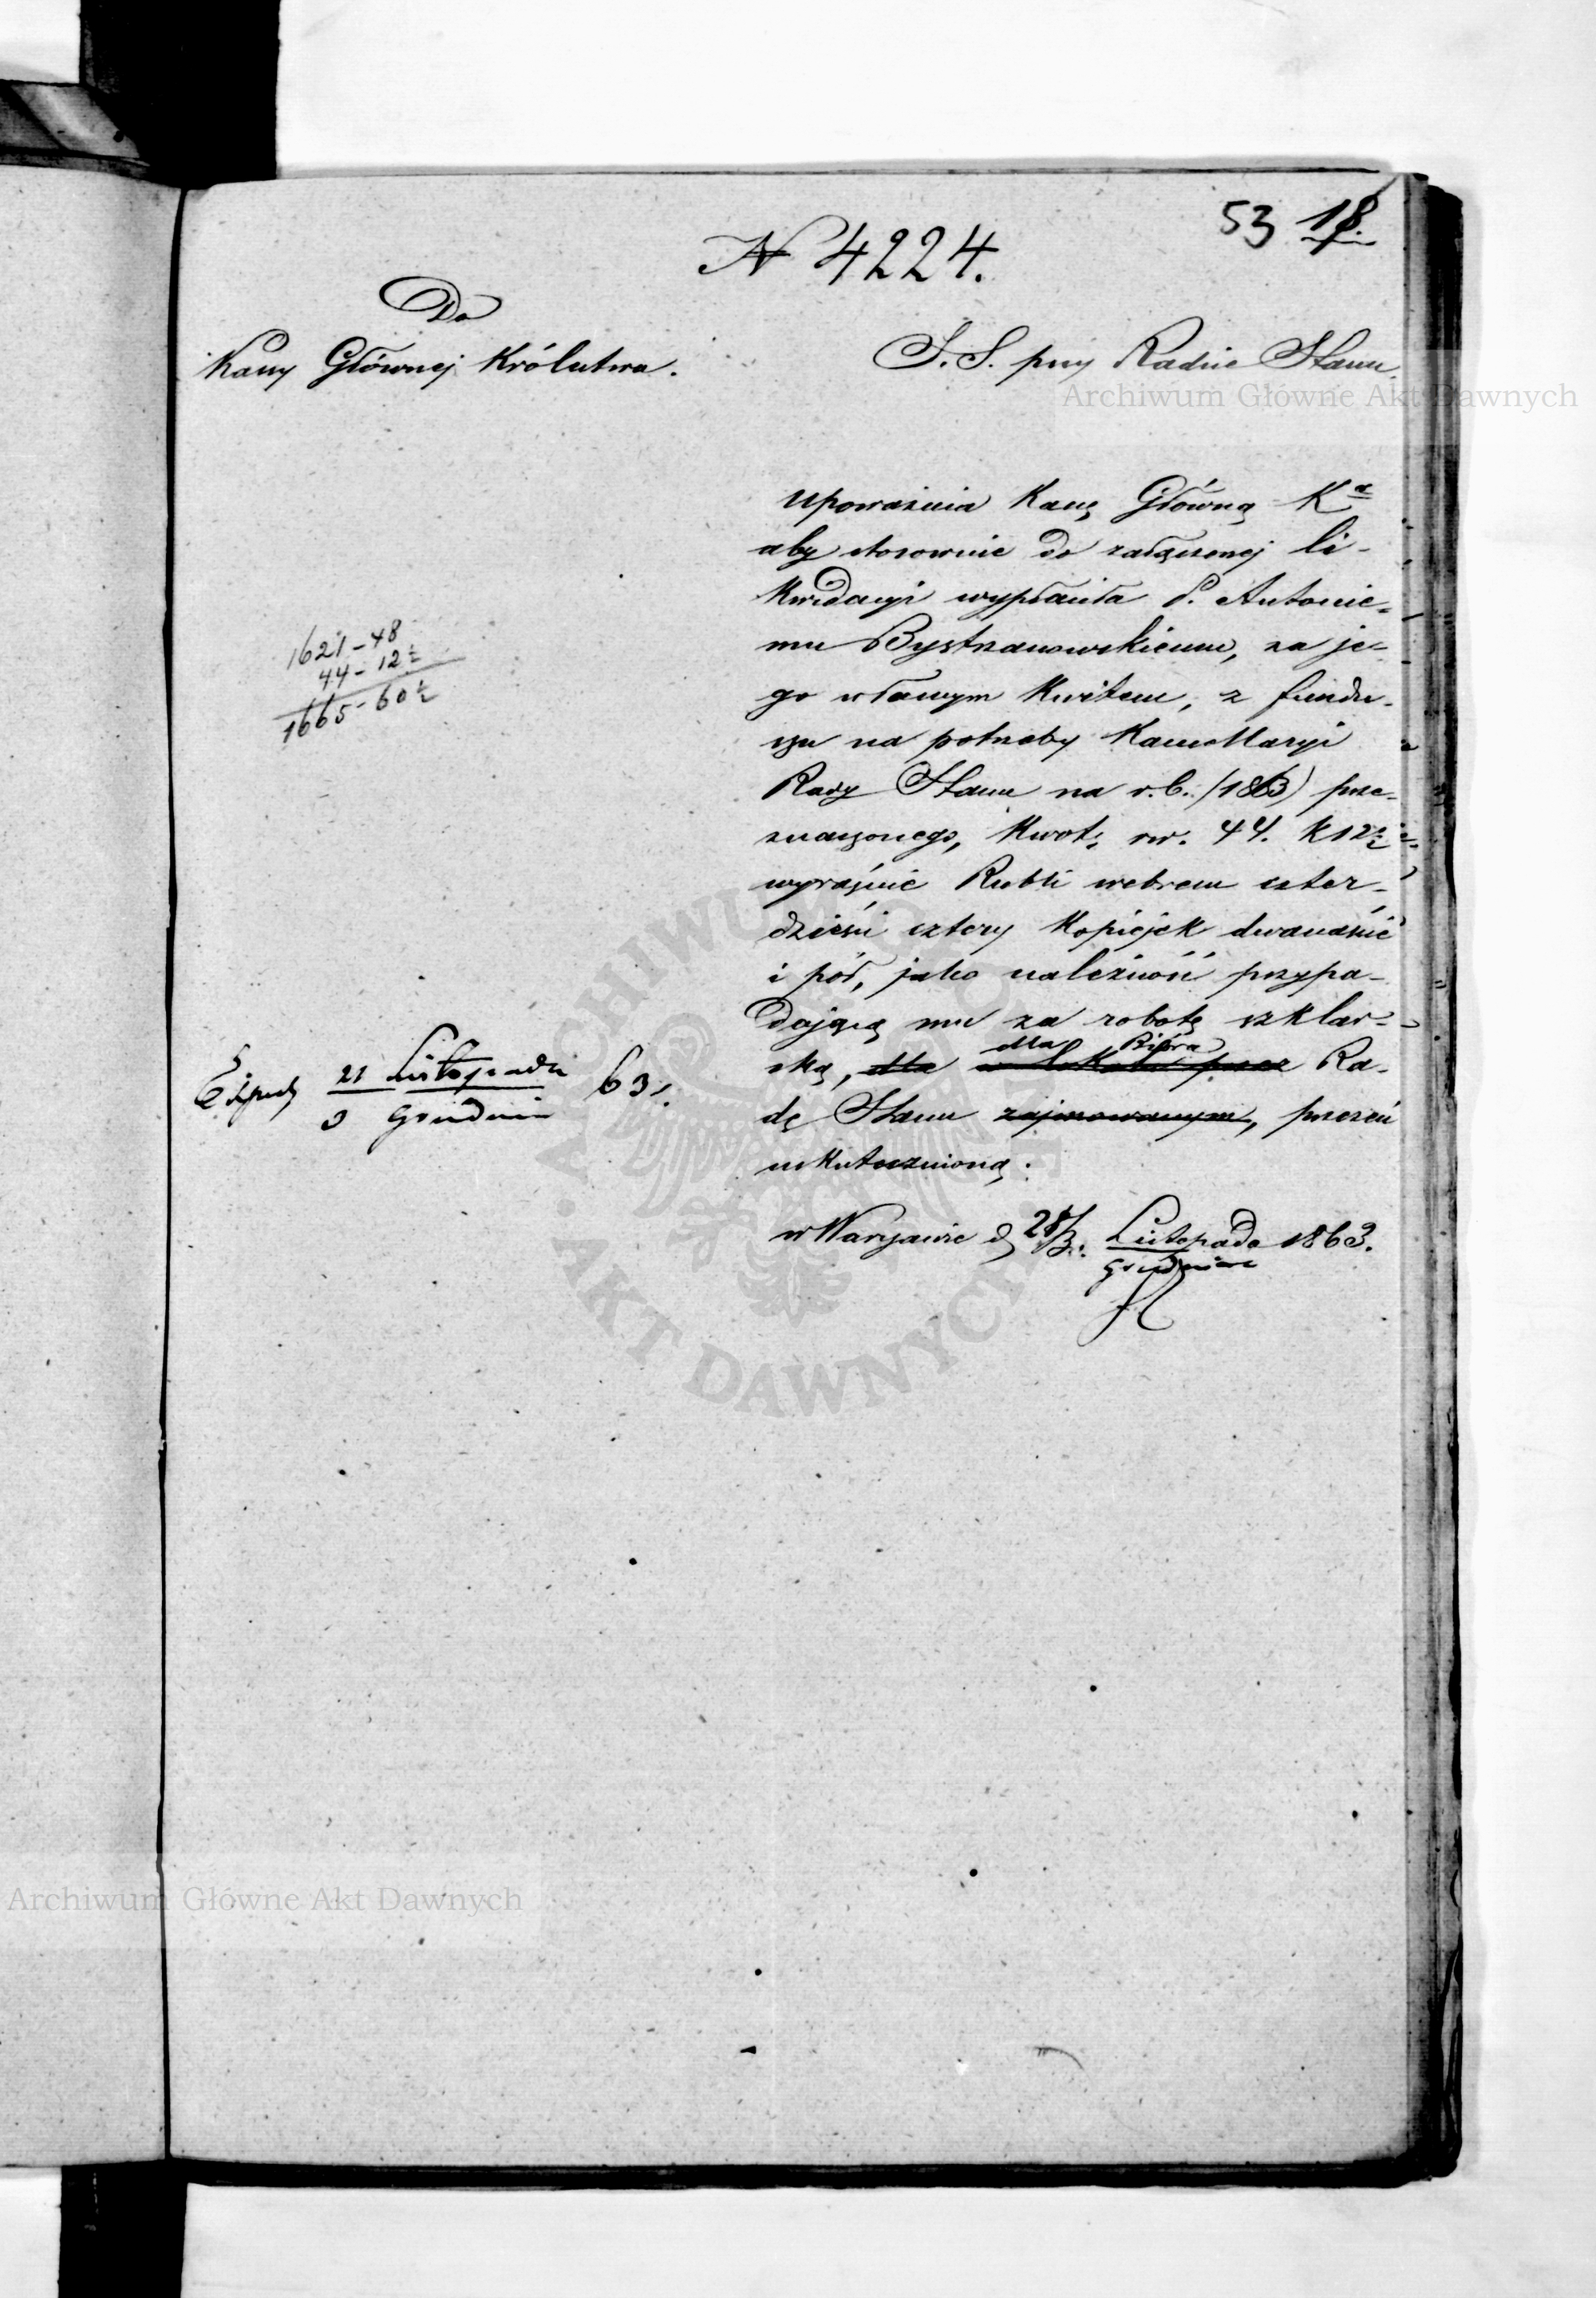 53 18.
N 4224.
Do
Kassy Głównej Królestwa.
S. S. przy Radzie Stanu
Archiwum Główne Akt Dawnych
Upoważnia Kassę Główną Ka
aby stosownie do załączonej li-
kwidacyi wypłaciła P. Antonie-
mu Bystrzanowskiemu, za je-
go własnym kwitem, z fundu-
szu na potrzeby Kancellaryi
Rady Stanu na r. b. (1863) prze-
znaczonego, kwotę rsr. 44. k 12½
wyraźnie Rubli srebrem czter-
dzieści cztery kopiejek dwanaście
i pół, jako należność przypa-
dającą mu za robotę szklar-
dla Bióra
ską, dla w lokalu przez Ra-
dę Stanu zajmowanym, przezeń
uskutecznioną.
w Warszawie d 28/3. Listopada 1863.
Grudnia
1621-48
44-12½
1665-60½
21 Listopada 63.
3 Grudnia
ARCHIWUM GŁÓWNE
AKT DAWNYCH
Archiwum Główne Akt Dawnych